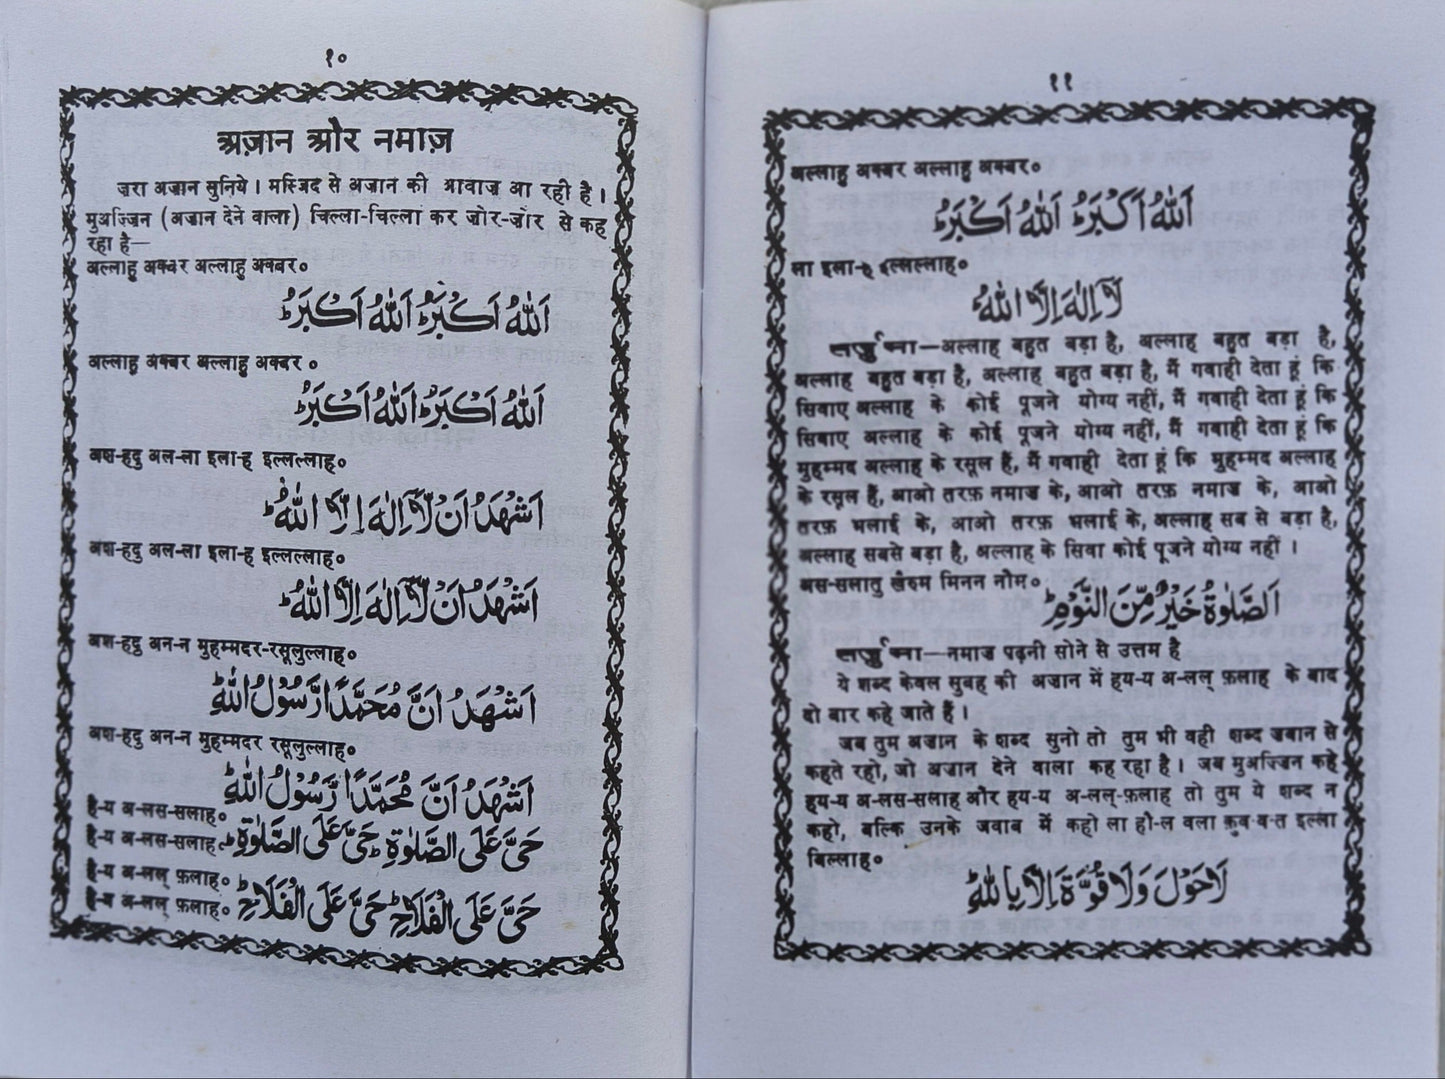 १०
अज़ान और नमाज़
ज़रा अज़ान सुनिये । मस्जिद से अज़ान की आवाज़ आ रही है ।
मुअज्जिन (अज़ान देने वाला) चिल्ला-चिल्ला कर ज़ोर-ज़ोर से कह
रहा है—
अल्लाहु अक्बर अल्लाहु अक्बर०
اَللهُ اَكْبَرُ اَللهُ اَكْبَرُ ؕ
अल्लाहु अक्बर अल्लाहु अक्बर ०
اَللهُ اَكْبَرُ ؕ اَللهُ اَكْبَرُ ؕ
अश-हदु अल-ला इला-ह इल्लल्लाह०
اَشْهَدُ اَنْ لَّآ اِلٰهَ اِلَّا اللهُ ؕ
अश-हदु अल-ला इला-ह इल्लल्लाह०
اَشْهَدُ اَنْ لَّآ اِلٰهَ اِلَّا اللهُ ؕ
अश-हदु अन-न मुहम्मदर-रसूलुल्लाह०
اَشْهَدُ اَنَّ مُحَمَّدًا رَّسُوْلُ اللهِ ؕ
अश-हदु अन-न मुहम्मदर रसूलुल्लाह०
اَشْهَدُ اَنَّ مُحَمَّدًا رَّسُوْلُ اللهِ ؕ
है-य अ-लस-सलाह०
है-य अ-लस-सलाह० حَيَّ عَلَى الصَّلٰوةِ ؕ حَيَّ عَلَى الصَّلٰوةِ ؕ
है-य अ-लल् फ़लाह०
है-य अ-लल् फ़लाह० حَيَّ عَلَى الْفَلَاحِ ؕ حَيَّ عَلَى الْفَلَاحِ ؕ
११
अल्लाहु अक्बर अल्लाहु अक्बर०
اَللهُ اَكْبَرُ ؕ اَللهُ اَكْبَرُ ؕ
ला इला-ह इल्लल्लाह०
لَآ اِلٰهَ اِلَّا اللهُ
तर्जुमा—अल्लाह बहुत बड़ा है, अल्लाह बहुत बड़ा है,
अल्लाह बहुत बड़ा है, अल्लाह बहुत बड़ा है, मैं गवाही देता हूं कि
सिवाए अल्लाह के कोई पूजने योग्य नहीं, मैं गवाही देता हूं कि
सिवाए अल्लाह के कोई पूजने योग्य नहीं, मैं गवाही देता हूं कि
मुहम्मद अल्लाह के रसूल हैं, मैं गवाही देता हूं कि मुहम्मद अल्लाह
के रसूल हैं, आओ तरफ़ नमाज के, आओ तरफ़ नमाज के, आओ
तरफ़ भलाई के, आओ तरफ़ भलाई के, अल्लाह सब से बड़ा है,
अल्लाह सबसे बड़ा है, अल्लाह के सिवा कोई पूजने योग्य नहीं ।
अस-सलातु खैरुम मिनन नौम०
اَلصَّلٰوةُ خَيْرٌ مِّنَ النَّوْمِ ؕ
तर्जुमा—नमाज पढ़नी सोने से उत्तम है
ये शब्द केवल सुबह की अज़ान में हय-य अ-लल् फ़लाह के बाद
दो बार कहे जाते हैं ।
जब तुम अज़ान के शब्द सुनो तो तुम भी वही शब्द जबान से
कहते रहो, जो अज़ान देने वाला कह रहा है । जब मुअज्जिन कहे
हय-य अ-लस-सलाह और हय-य अ-लल्-फ़लाह तो तुम ये शब्द न
कहो, बल्कि उनके जवाब में कहो ला हौ-ल वला क़ुव-व-त इल्ला
बिल्लाह०
لَاحَوْلَ وَلَا قُوَّةَ اِلَّا بِاللهِ ؕ